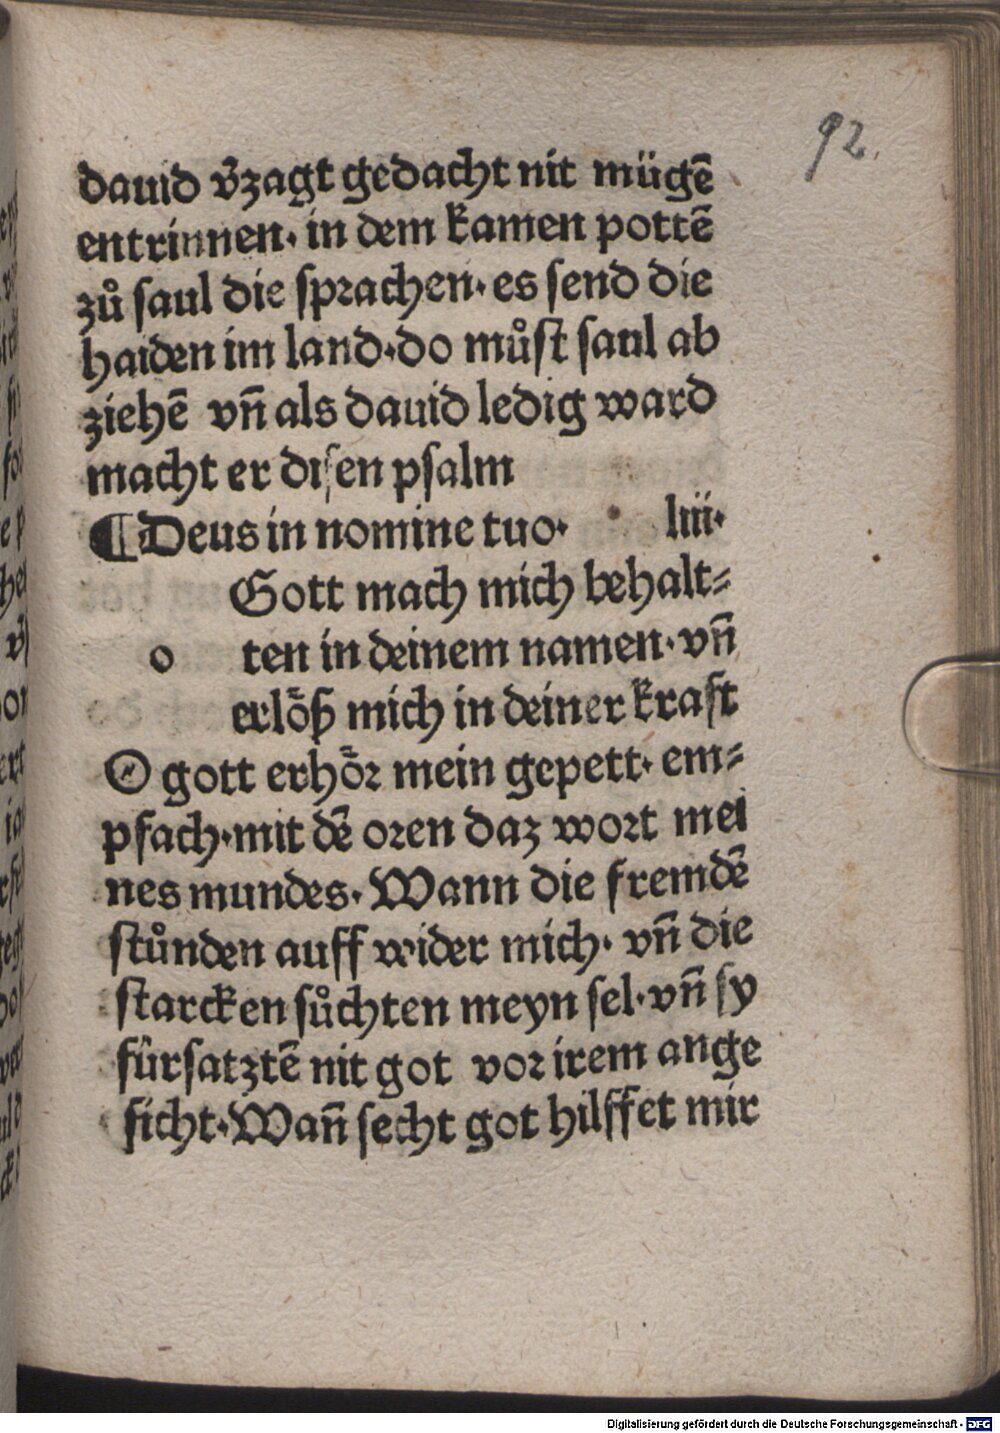 92.
dauid v̄zagt gedacht nit mügē
entrinnen· in dem kamen pottē
zů saul die sprachen· es send die
haiden im land·do můst saul ab
ziehē vn̄ als dauid ledig ward
macht er disen psalm
¶Deus in nomine tuo· liii·
Gott mach mich behalt⸗
o ten in deinem namen· vn̄
erlöß mich in deiner kraft
O gott erhör mein gepett· em⸗
pfach·mit dē oren daz wort mei
nes mundes· Wann die fremdē
stůnden auff wider mich· vn̄ die
starcken sůchten meyn sel·vn̄ sy
fürsatztē nit got vor irem ange
sicht·Wan̄ secht got hilffet mir
Digitalisierung gefördert durch die Deutsche Forschungsgemeinschaft - DFG